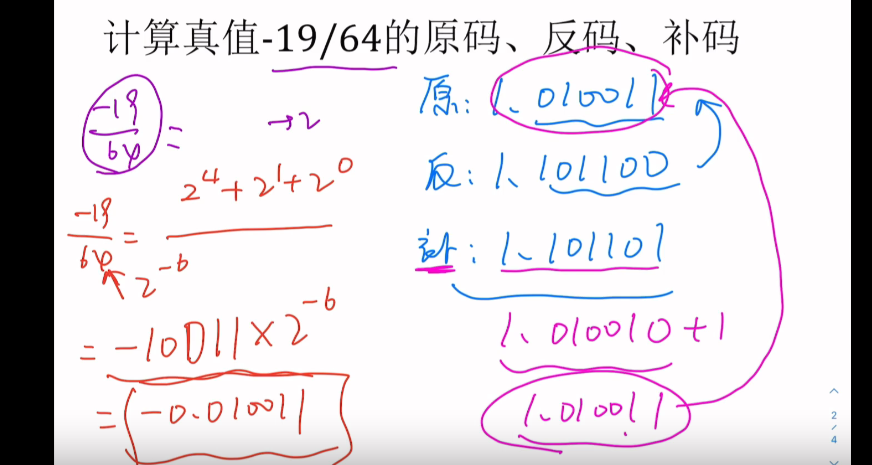 计算真值-19/64的原码、反码、补码
-19/64 = →2
-19/64 = 2^4+2^1+2^0
2^-6
= -10011×2^-6
= -0.010011
原: 1.010011
反: 1.101100
补: 1.101101
1.010010+1
1.010011
2/4